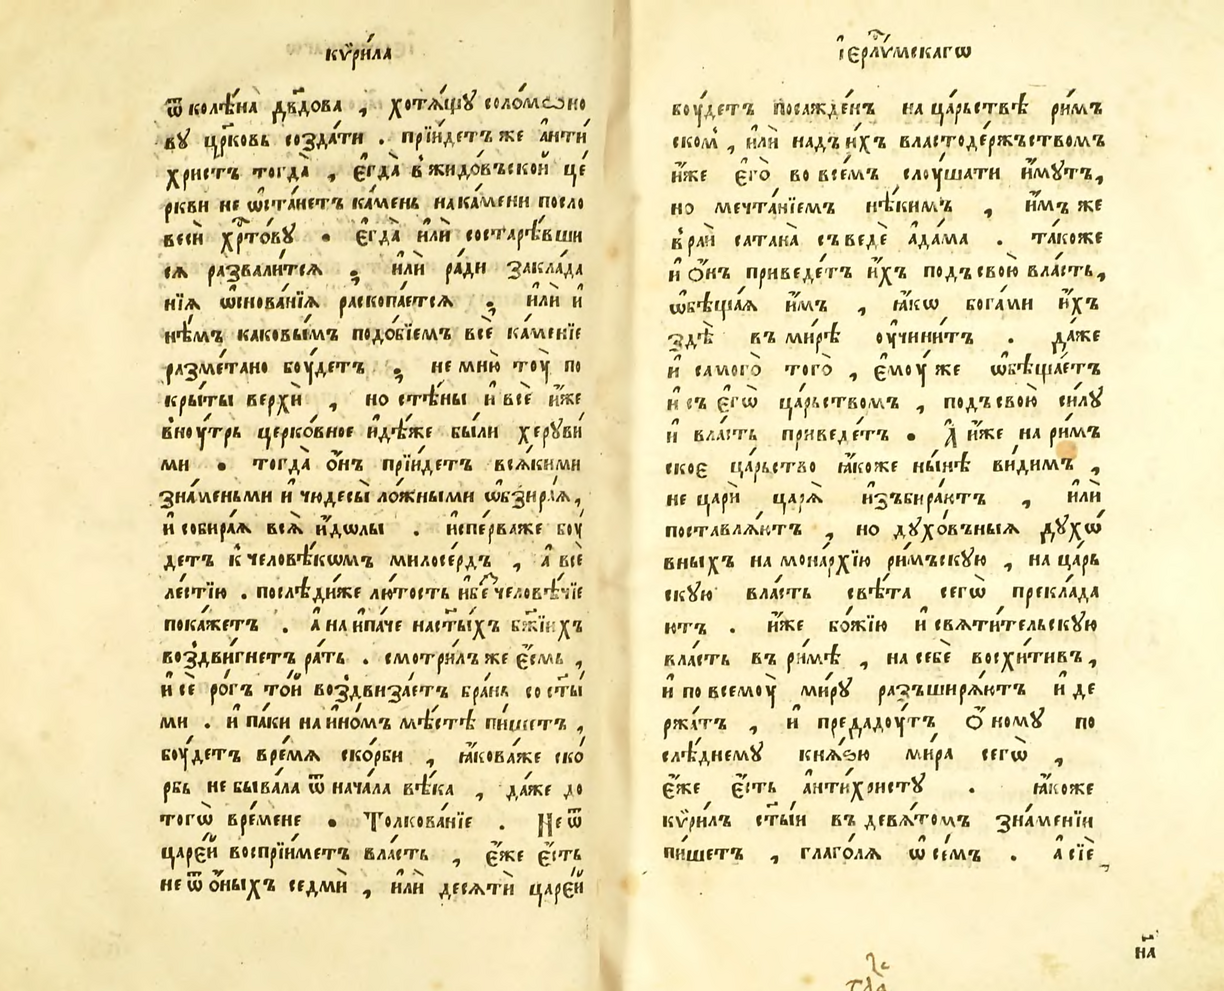 кѷри́ла
ѿ колѣ́на дв҃дова , хотѧ́щꙋ соло́мѡно
вꙋ цр҃ковь созда́ти . прїи́детъ же а҆нти́
христъ тогда̀ , є҆гда̀ в жидо́въской це́
ркви не ѡ҆ста́нетъ ка́мень на ка́мени посло
веси̂ хр҃то́вꙋ . є҆гда̀ и҆лѝ состарѣ́вши
сѧ разва́литсѧ , и҆лѝ ра́ди закла́да
нїѧ ѡ҆снова́нїѧ раскопа́етсѧ , и҆лѝ и҆
нѣ́мъ каковы́мъ подо́бїемъ всѐ ка́менїе
разме́тано бꙋ́детъ , не мню̀ тоу̀ по
кры́ты верхѝ , но стѣ́ны и҆ всѐ и҆́же
внꙋ́трь церко́вное и҆дѣ́же бы́ли херꙋви́
ми . тогда̀ ѻ҆́нъ прїи́детъ всѧ́кими
зна́меньми и҆ чюдесы̀ ло́жными ѡ҆бзира́ѧ ,
и҆ собира́ѧ всѧ̀ и҆́дѡлы . и҆спе́рва же боу́
детъ к человѣ́кѡмъ милосе́рдъ , а҆ всѐ
ле́стїю . послѣди́же лю́тость и҆ бе́счеловѣ́чїе
пока́жетъ . а҆ наипа́че на ст҃ы́хъ бж҃їихъ
воздви́гнетъ ра́ть . смотри́лъ же є҆́смь ,
и҆ сѐ ро́гъ то́й воздвиза́етъ бра́нь со ст҃ы́
ми . и҆ па́ки на и҆но́мъ мѣ́стѣ пи́шетъ ,
боу́детъ вре́мѧ ско́рби , ꙗ҆кова́же ско́
рбь не быва́ла ѿ нача́ла вѣ́ка , да́же до
тогѡ̀ вре́мене . Толкова́нїе . Не ѿ
царе́й воспрїи́метъ вла́сть , є҆́же є҆́сть
не ѿ ѻ҆́ныхъ седмѝ , и҆лѝ десѧтѝ царе́й
і҆ерл҃и́мскагѡ
боу́детъ посажде́нъ на ца́рьствѣ ри́мъ
ском , и҆лѝ надъ и҆́хъ властоде́ржъствомъ
и҆́же є҆го̀ во все́мъ слоу́шати и҆́мꙋтъ ,
но мечта́нїемъ нѣ́кимъ , и҆́мъ же
в ра́й сатана̀ съведѐ а҆да́ма . та́коже
и҆ ѻ҆́нъ приведе́тъ и҆́хъ подъ свою̀ вла́сть ,
ѡ҆бѣща́ѧ и҆́мъ , ꙗ҆́кѡ бога́ми и҆́хъ
здѣ̀ въ ми́рѣ оу҆чини́тъ . да́же
и҆ самого̀ того̀ , є҆моу́ же ѡ҆бѣща́етъ
и҆ съ є҆гѡ̀ ца́рьствомъ , подъ свою̀ си́лꙋ
и҆ вла́сть приведе́тъ . А҆ и҆́же на ри́мъ
скоє ца́рьство ꙗ҆́коже ны́нѣ ви́димъ ,
не царѝ царѧ̀ и҆зъбира́ютъ , и҆лѝ
поставлѧ́ютъ , но дꙋхо́въныѧ дꙋхѡ́
вныхъ на мона́рхїю ри́мъскꙋю , на царь
скꙋю вла́сть свѣ́та сегѡ̀ преклада
ютъ . и҆́же бо́жїю и҆ свѧти́тельскꙋю
вла́сть въ ри́мѣ , на себѐ восхи́тивъ ,
и҆ по всемоу̀ ми́рꙋ разъширѧ́ютъ и҆ де
ржа́тъ , и҆ предадоу́тъ ѻ҆́номꙋ по
слѣ́днемꙋ кнѧ́ѕю ми́ра сегѡ̀ ,
є҆́же є҆́сть а҆нти́христꙋ . ꙗ҆́коже
кѷри́лъ ст҃ы́и въ девѧ́томъ зна́менїи
пи́шетъ , глаго́лѧ ѡ҆ се́мъ . а҆ сїѐ
на҃